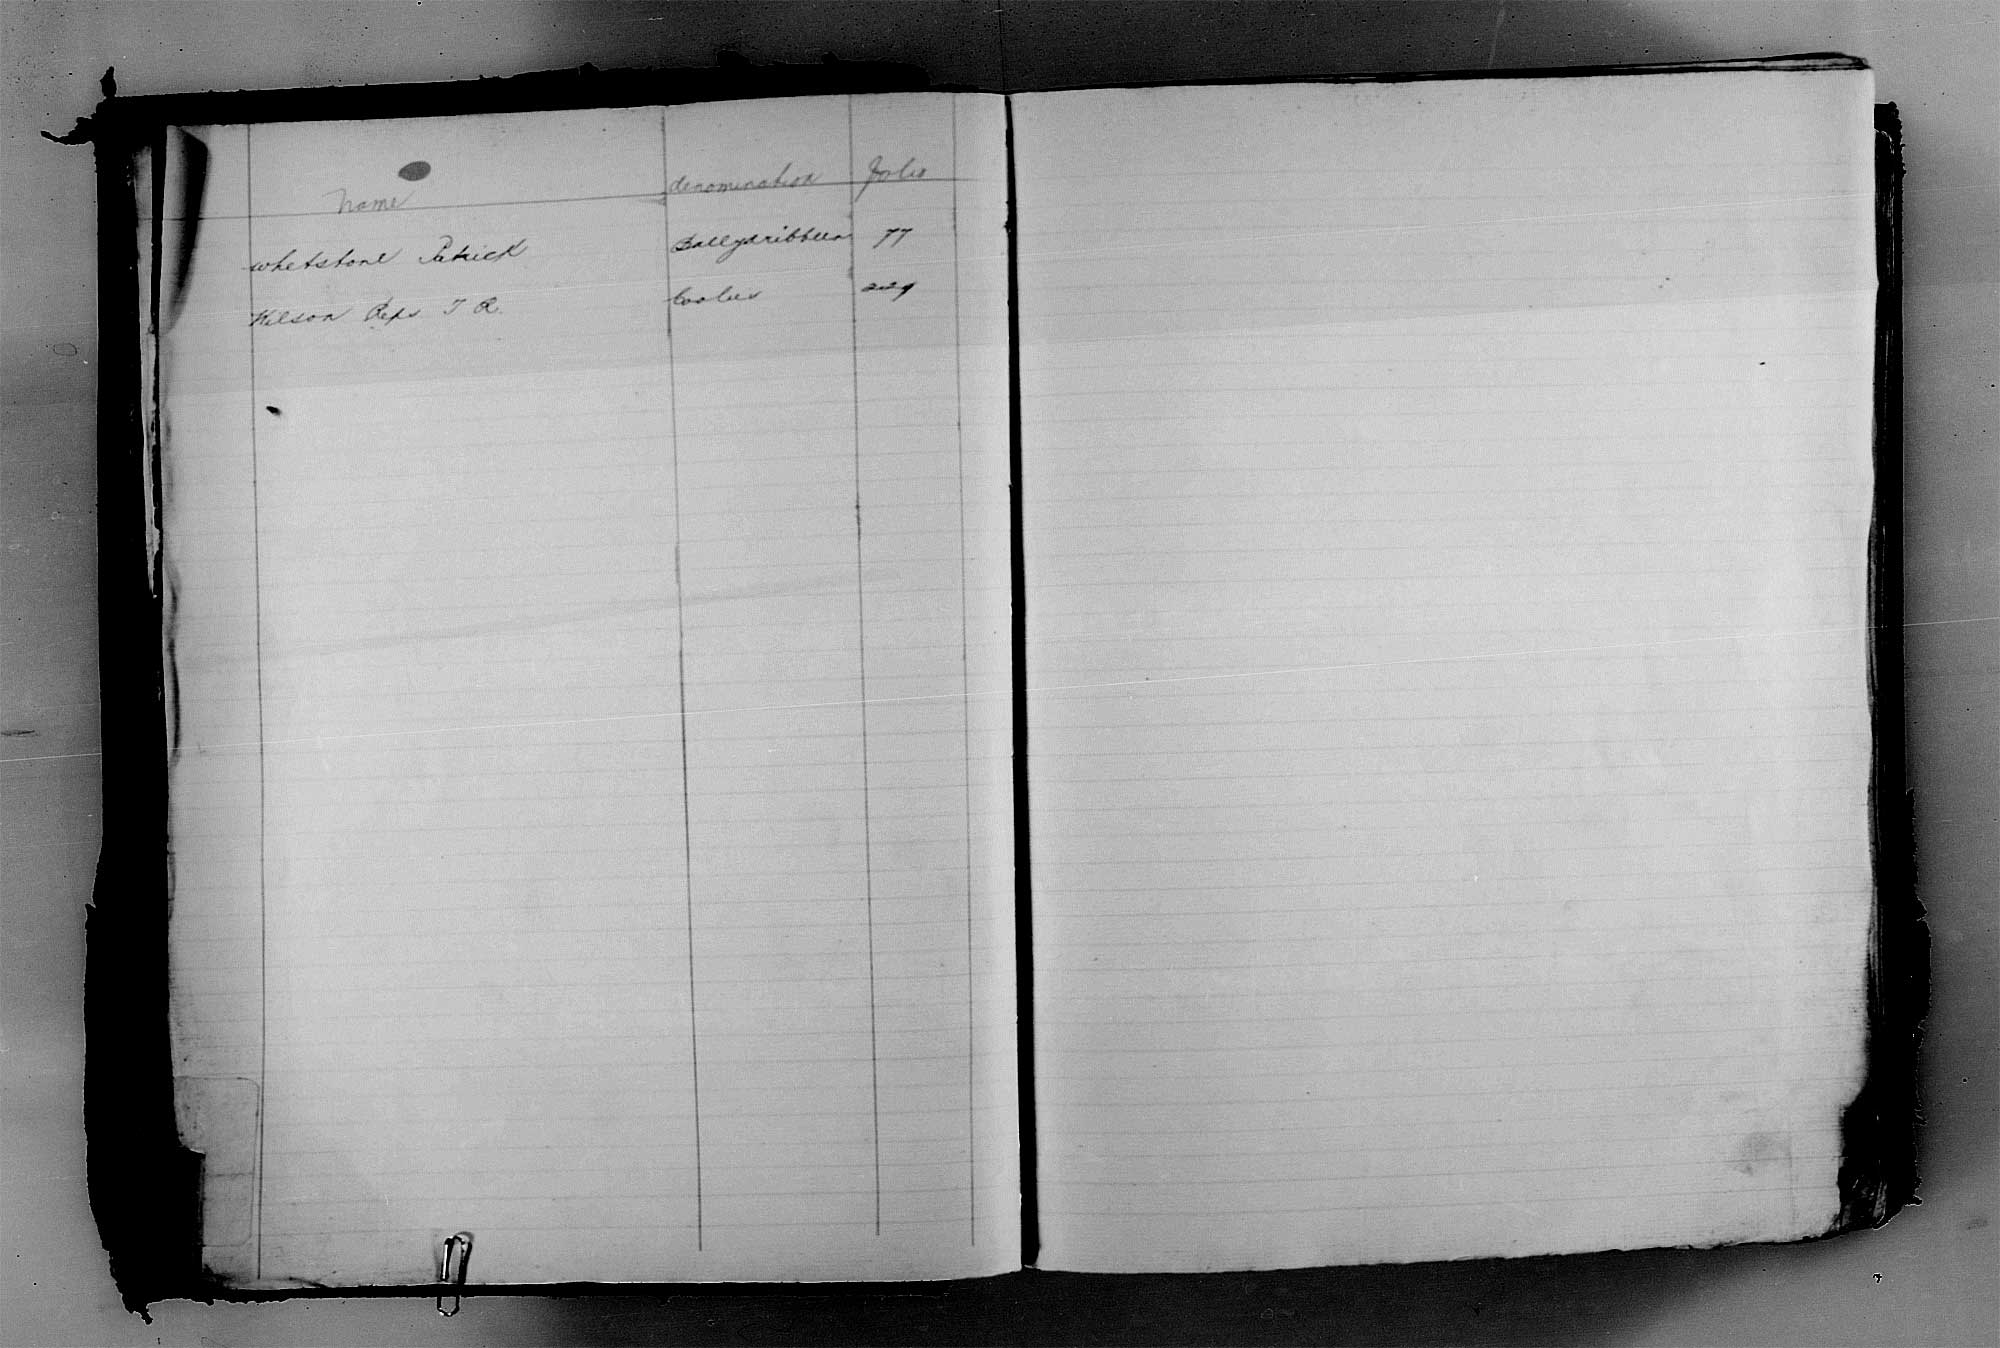 Name denomination folio
Whetstone Patrick Ballydribbeen 77
Wilson Reps T R. Coolies 229